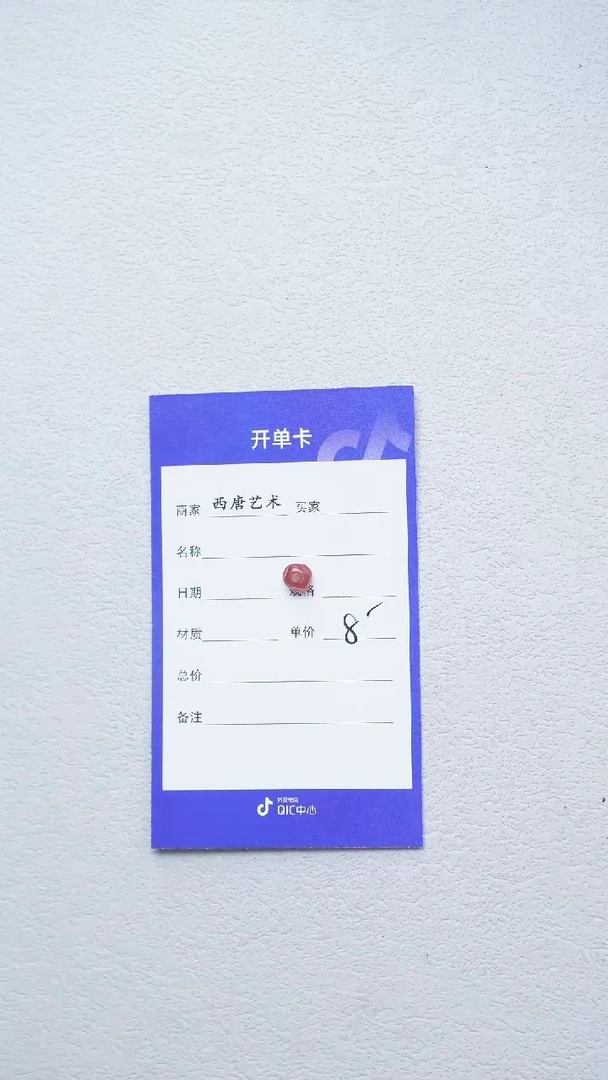 开单卡
商家 西唐艺术 买家
名称
日期 规格
材质 单价 8
总价
备注
抖音电商
QIC中心